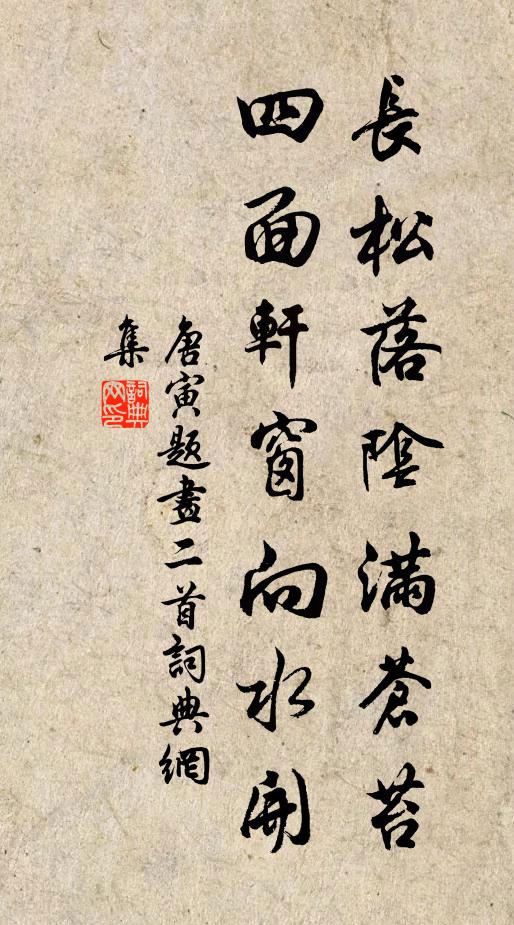 長松落陰滿蒼苔
四面軒窗向水開
唐寅題畫二首詞典網
集
詞典网印